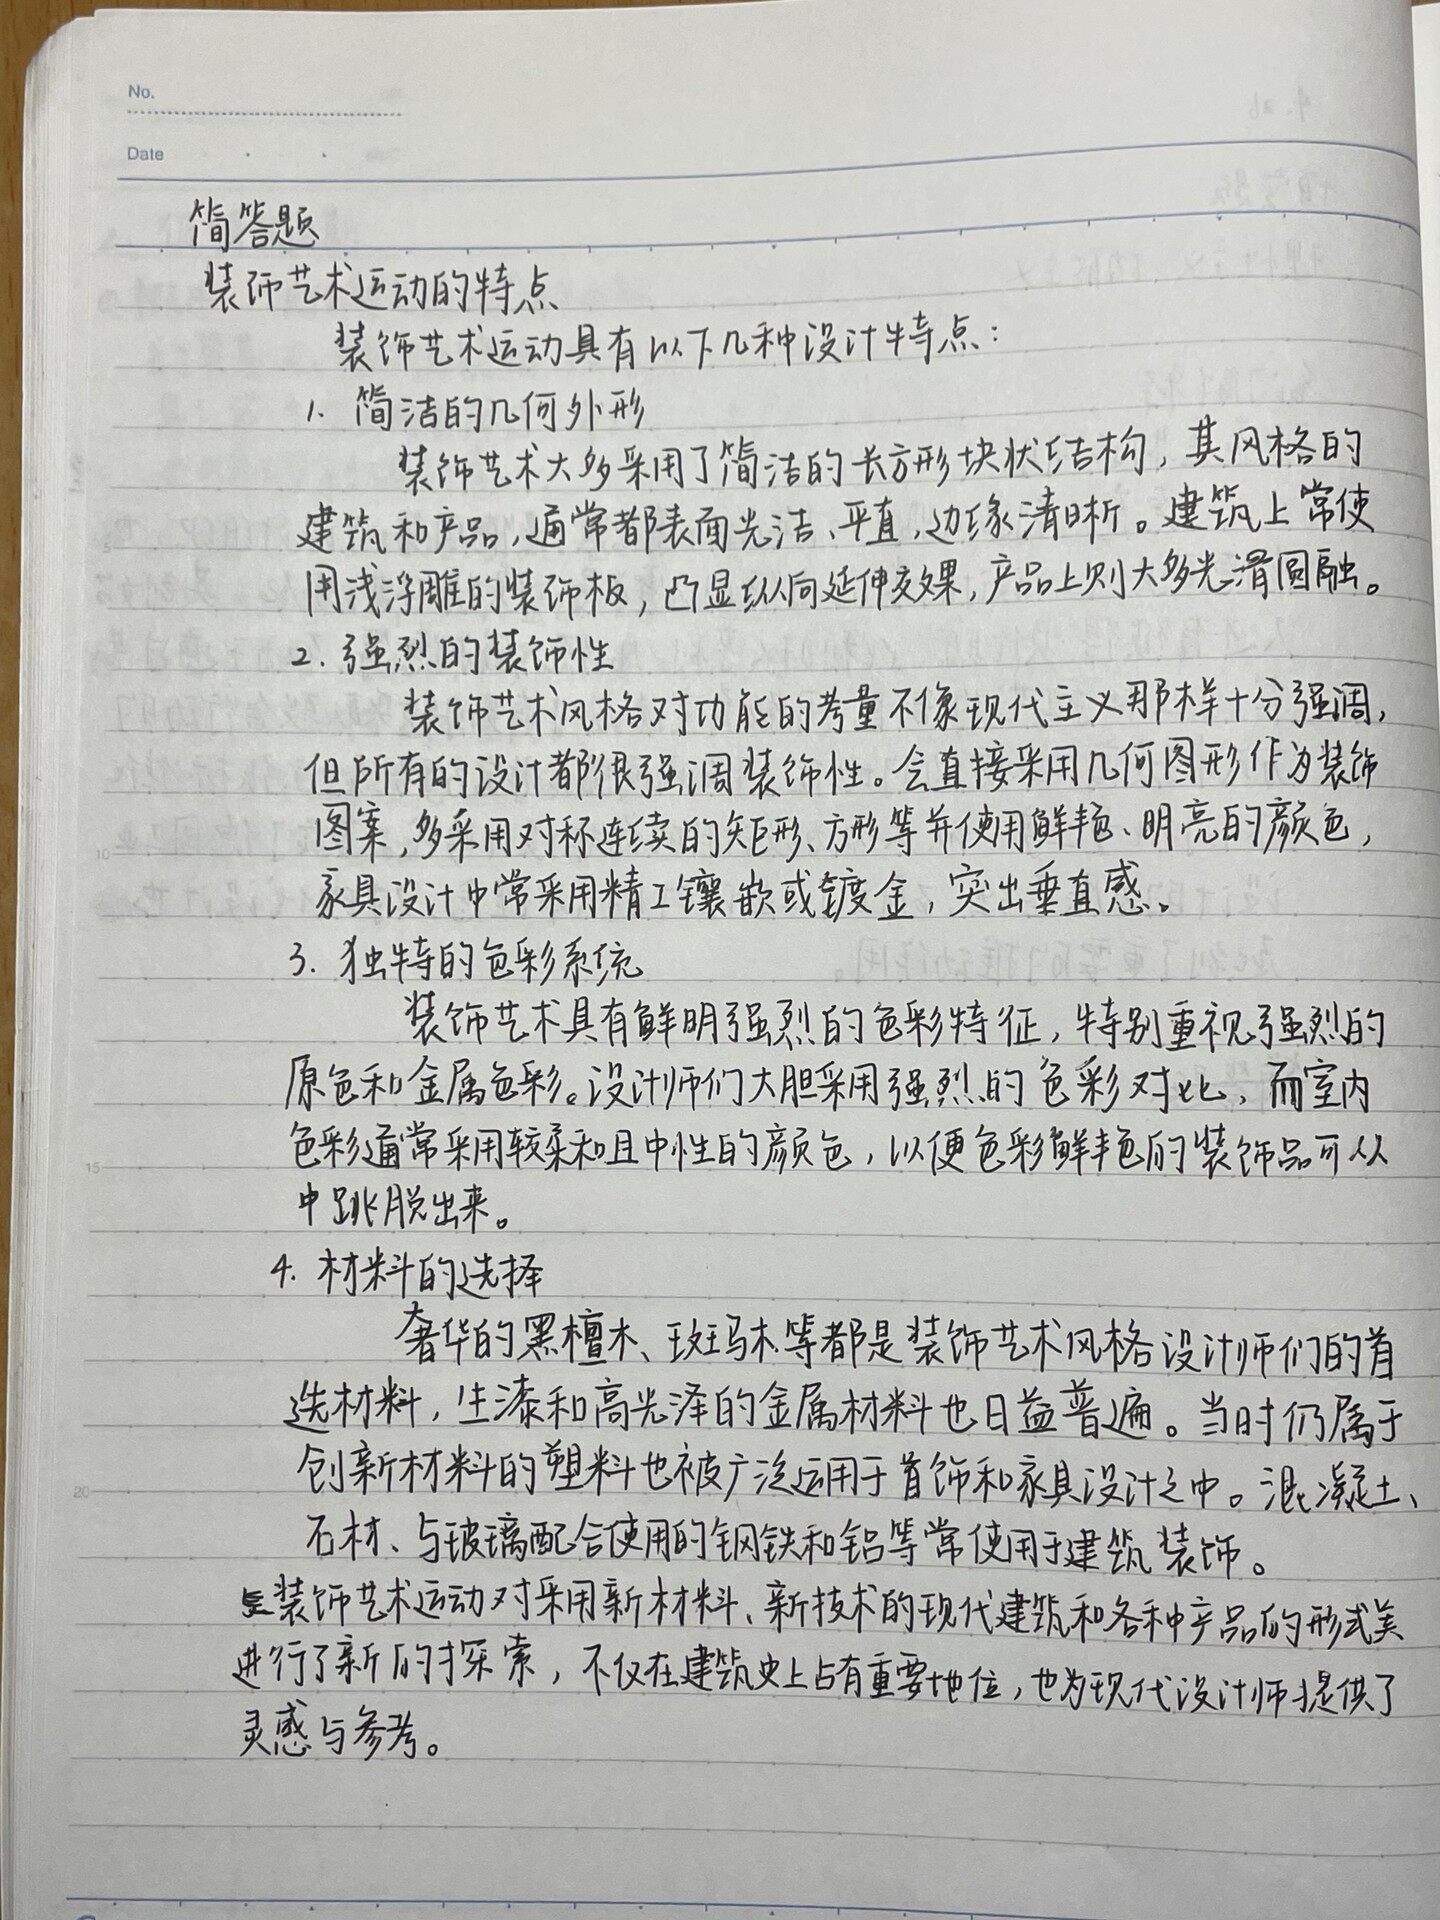 No.
Date
简答题
装饰艺术运动的特点
装饰艺术运动具有以下几种设计特点：
1. 简洁的几何外形
装饰艺术大多采用了简洁的长方形块状结构，其风格的
建筑和产品，通常都表面光洁、平直，边缘清晰。建筑上常使
用浅浮雕的装饰板，凸显纵向延伸效果，产品上则大多光滑圆融。
2. 强烈的装饰性
装饰艺术风格对功能的考量不像现代主义那样十分强调，
但所有的设计都很强调装饰性。会直接采用几何图形作为装饰
图案，多采用对称连续的矩形、方形等并使用鲜艳、明亮的颜色，
家具设计中常采用精工镶嵌或镀金，突出垂直感。
3. 独特的色彩系统
装饰艺术具有鲜明强烈的色彩特征，特别重视强烈的
原色和金属色彩。设计师们大胆采用强烈的色彩对比，而室内
色彩通常采用较柔和且中性的颜色，以便色彩鲜艳的装饰品可从
中跳脱出来。
4. 材料的选择
奢华的黑檀木、斑玛木等都是装饰艺术风格设计师们的首
选材料，生漆和高光泽的金属材料也日益普遍。当时仍属于
创新材料的塑料也被广泛运用于首饰和家具设计之中。混凝土、
石材、与玻璃配合使用的钢铁和铝等常使用于建筑装饰。
装饰艺术运动对采用新材料、新技术的现代建筑和各种产品的形式美
进行了新的探索，不仅在建筑史上占有重要地位，也为现代设计师提供了
灵感与参考。
10
15
20